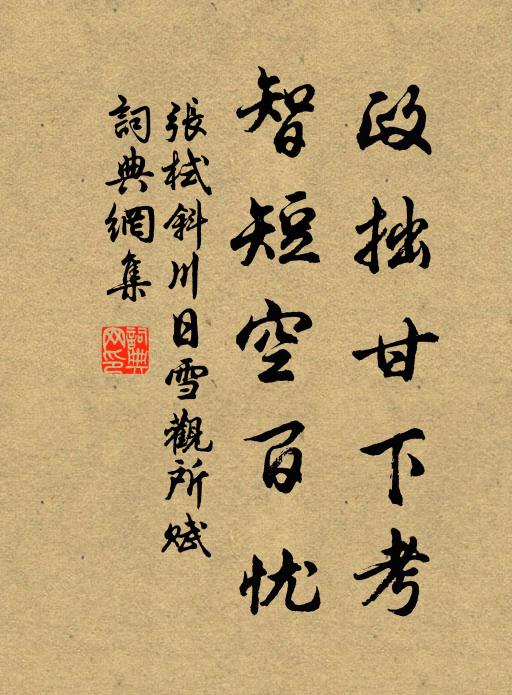 政拙甘下考
智短空百忧
張栻斜川日雪觀所賦
詞典網集
詞典網印